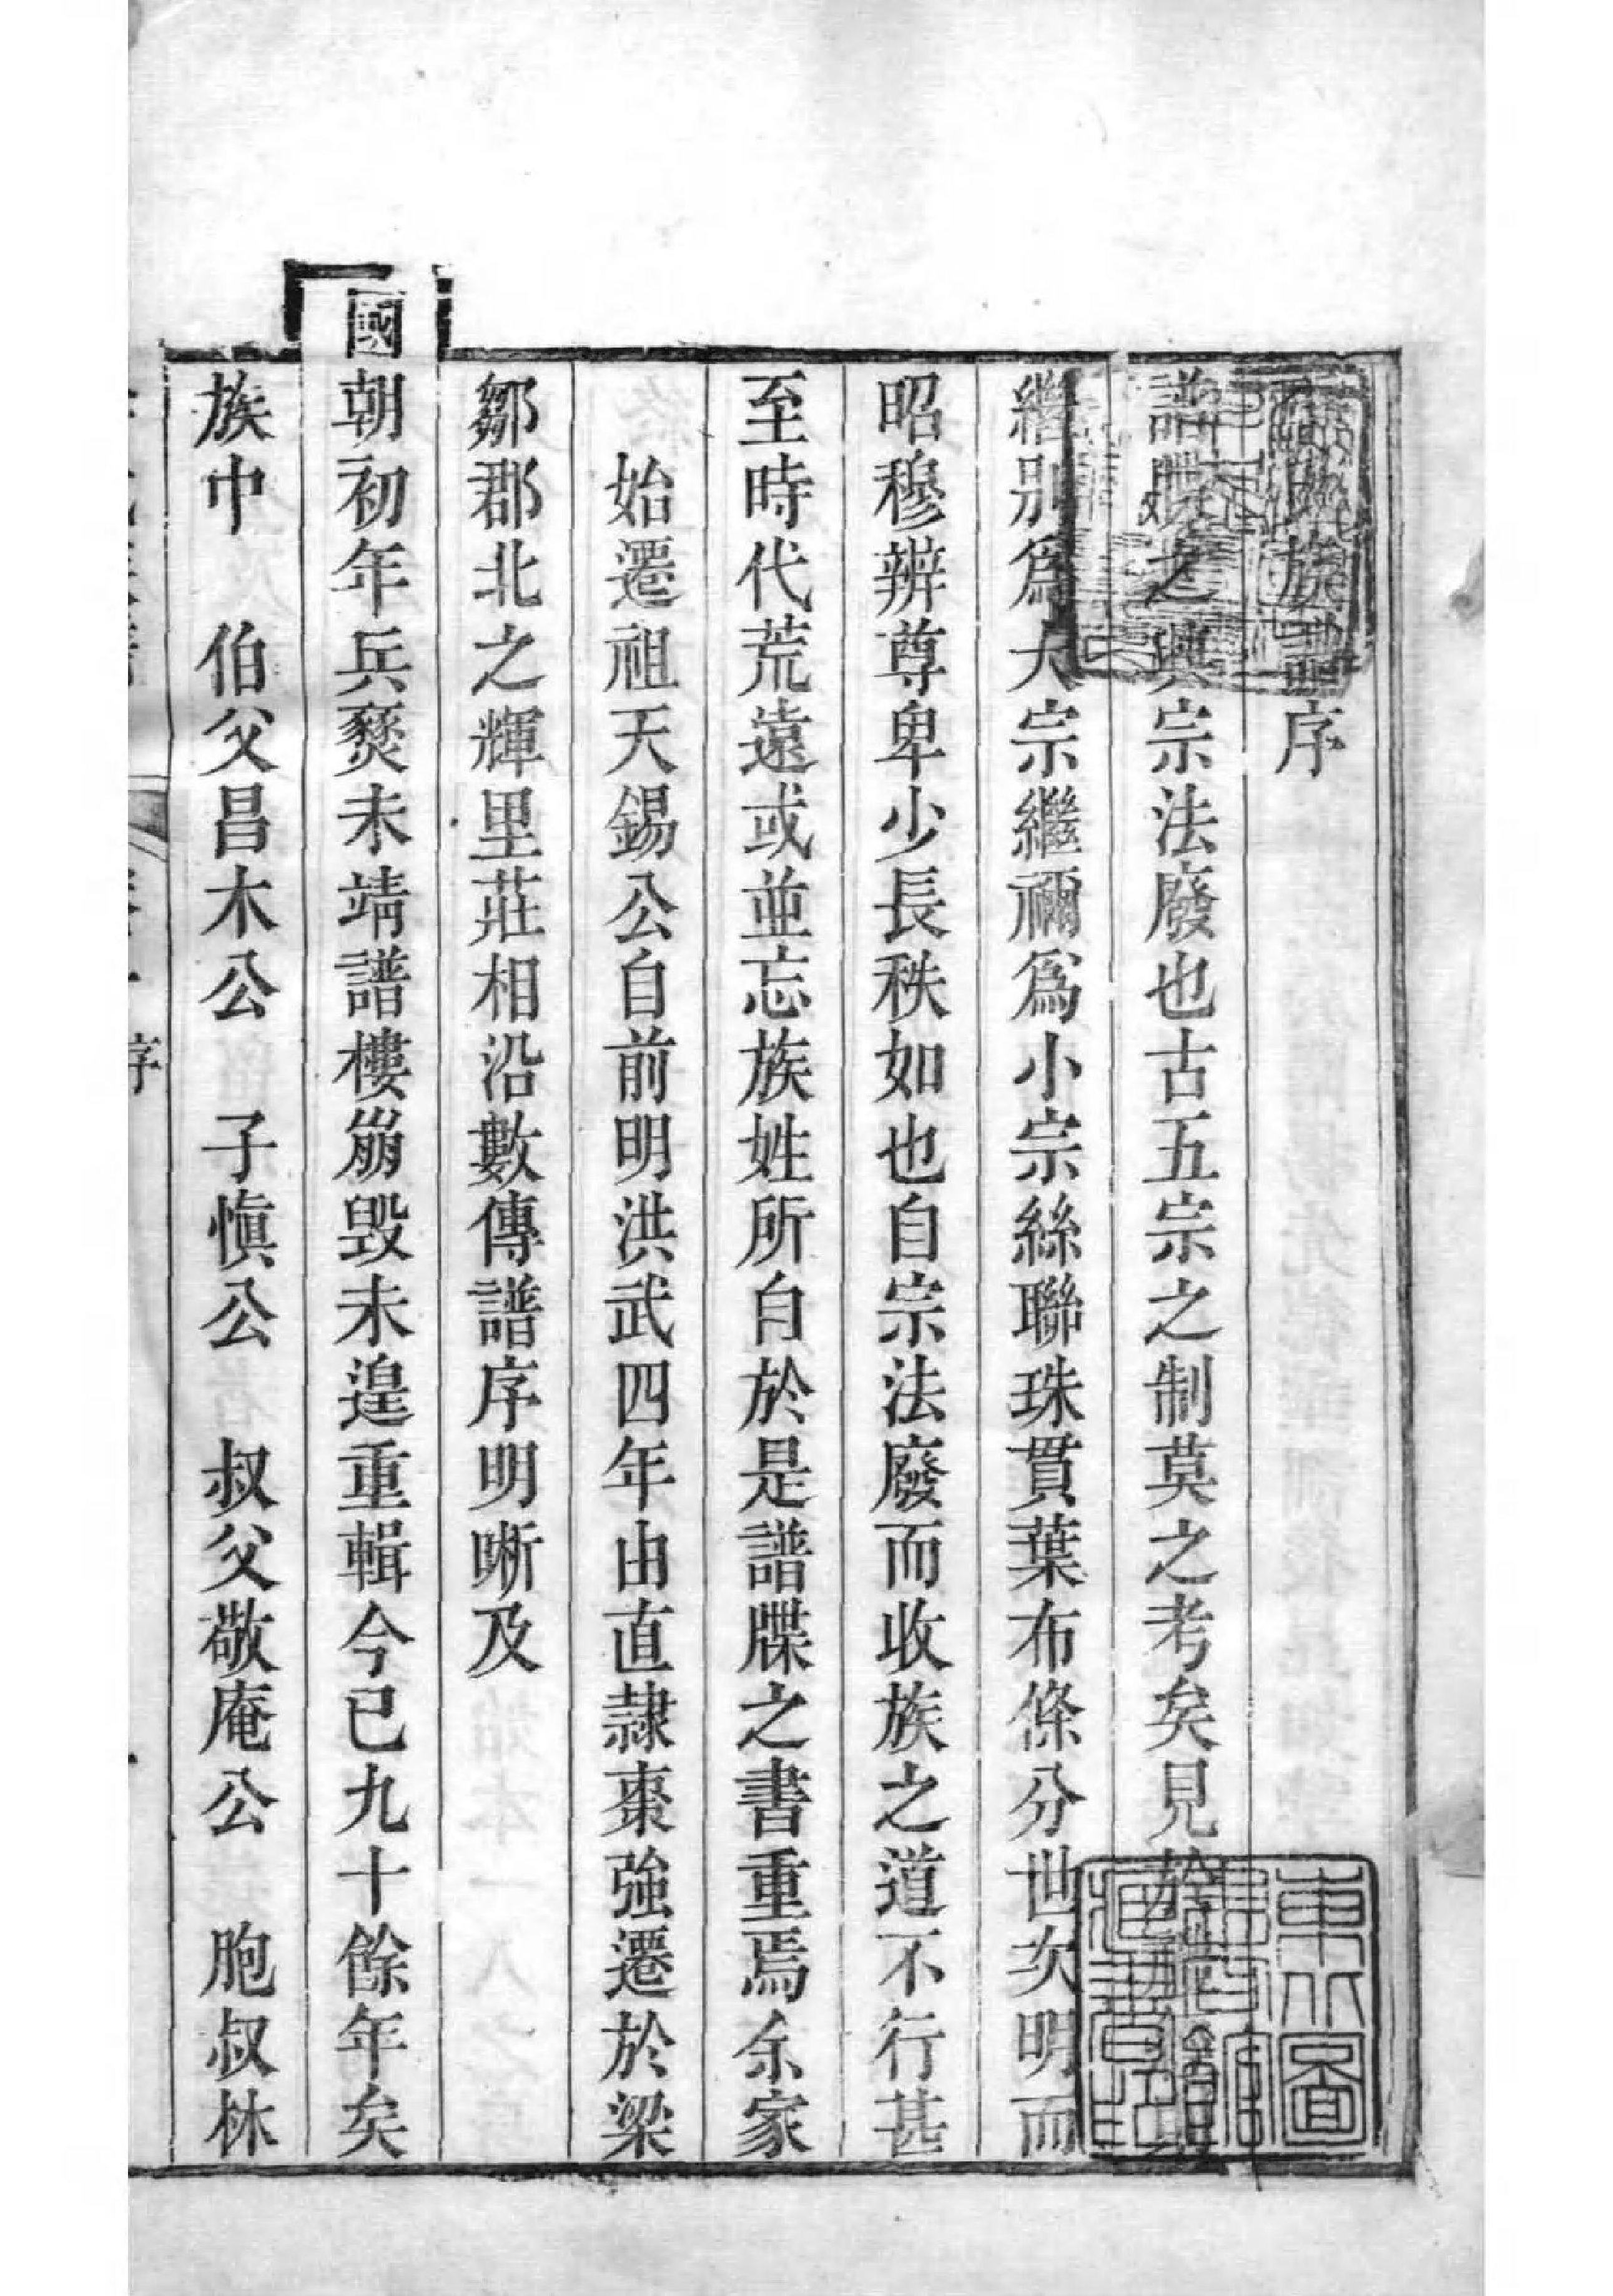 族譜序
譜牒之興宗法廢也古五宗之制莫之考矣見於
繼別爲大宗繼禰爲小宗絲聯珠貫葉布條分世次明而
昭穆辨尊卑少長秩如也自宗法廢而收族之道不行甚
至時代荒遠或並忘族姓所自於是譜牒之書重焉余家
始遷祖天錫公自前明洪武四年由直隸棗強遷於梁
鄒郡北之輝里莊相沿數傳譜序明晰及
國朝初年兵燹未靖譜樓崩毀未遑重輯今已九十餘年矣
族中 伯父昌木公 子愼公 叔父敬庵公 胞叔林
序